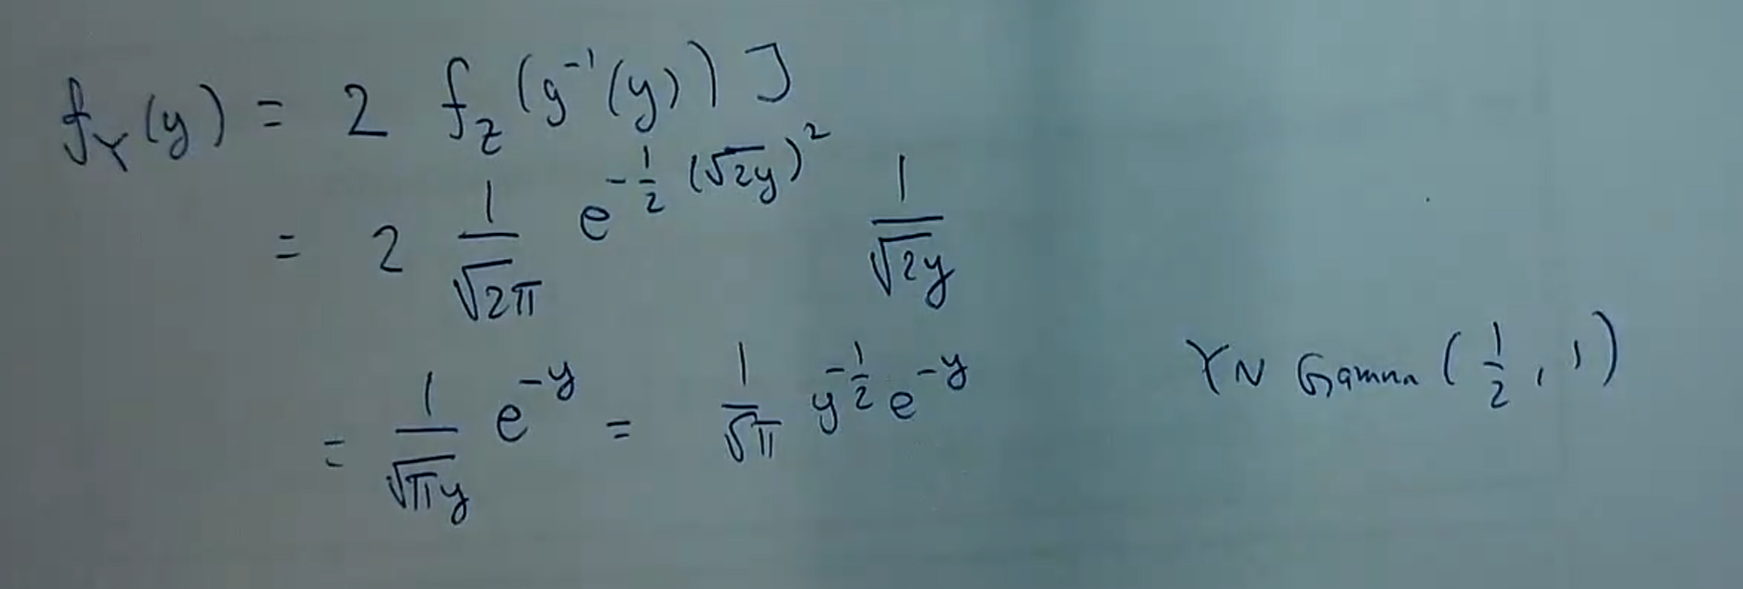 f_Y(y) = 2 f_Z(g^{-1}(y)) J
= 2 \frac{1}{\sqrt{2π}} e^{-\frac{1}{2}(\sqrt{2y})^2} \frac{1}{\sqrt{2y}}
= \frac{1}{\sqrt{πy}} e^{-y} = \frac{1}{\sqrt{π}} y^{-\frac{1}{2}} e^{-y}
Y ~ Gamma(\frac{1}{2}, 1)